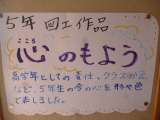 5年 図工作品
こころ
心のもよう
高学年としての責任、クラスの
など、5年生の今の心を形や色
で表しました。